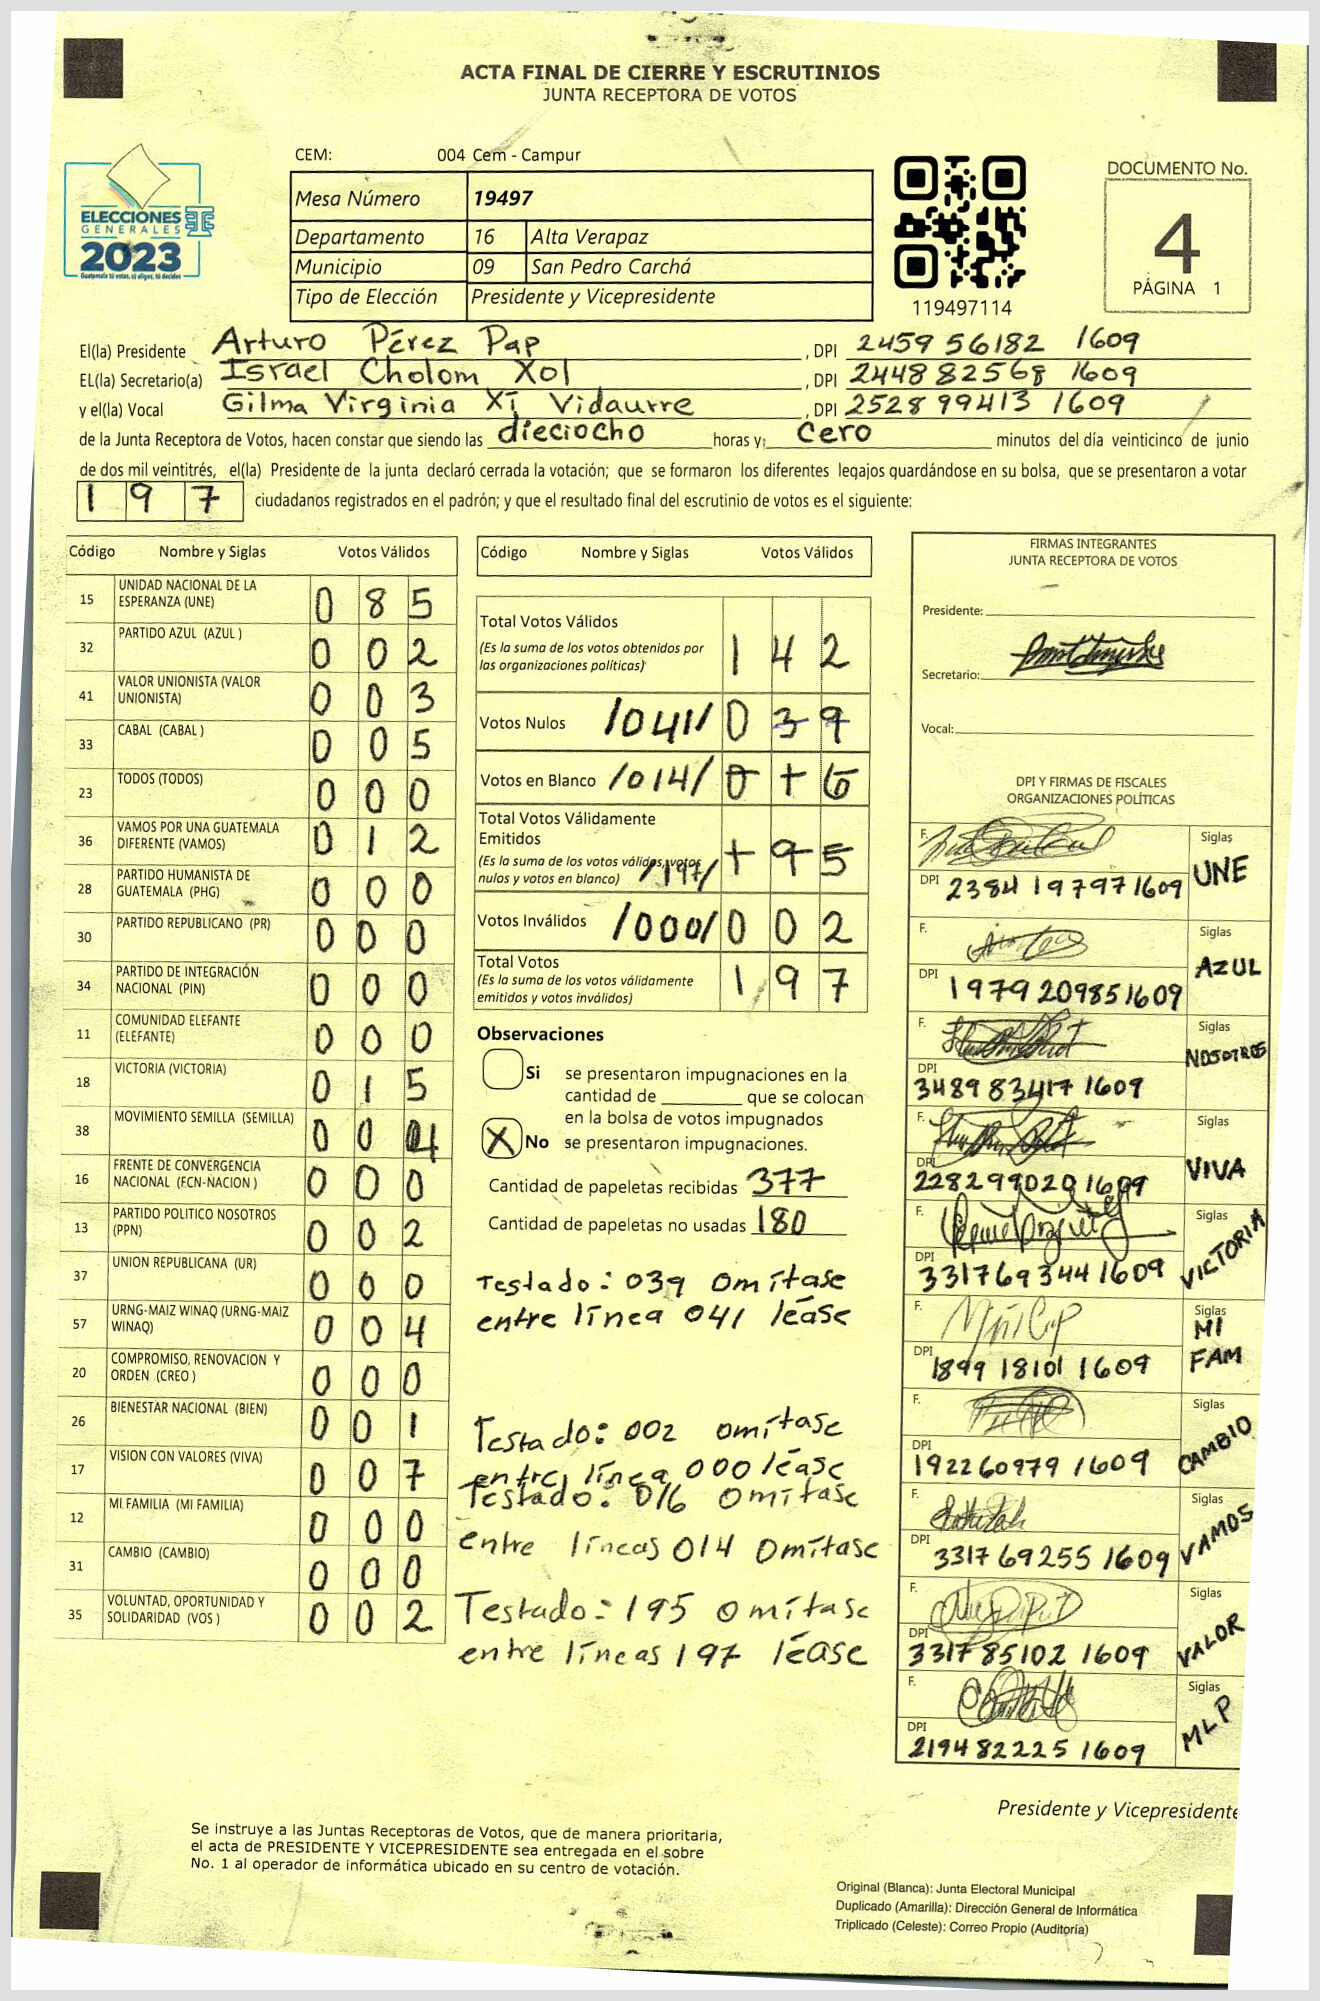 ACTA FINAL DE CIERRE Y ESCRUTINIOS
JUNTA RECEPTORA DE VOTOS
ELECCIONES
GENERALES
2023
Guatemala tú votas, tú eliges, tú decides
CEM: 004 Cem - Campur
Mesa Número 19497
Departamento 16 Alta Verapaz
Municipio 09 San Pedro Carchá
Tipo de Elección Presidente y Vicepresidente
119497114
DOCUMENTO No.
4
PÁGINA 1
El(la) Presidente Arturo Pérez Pap, DPI 2459 56182 1609
EL(la) Secretario(a) Israel Cholom Xol, DPI 2448 82568 1609
y el(la) Vocal Gilma Virginia Xí Vidaurre, DPI 2528 99413 1609
de la Junta Receptora de Votos, hacen constar que siendo las dieciocho horas y cero minutos del día veinticinco de junio
de dos mil veintitrés, el(la) Presidente de la junta declaró cerrada la votación; que se formaron los diferentes legajos quardándose en su bolsa, que se presentaron a votar
197 ciudadanos registrados en el padrón; y que el resultado final del escrutinio de votos es el siguiente:
Código Nombre y Siglas Votos Válidos
15 UNIDAD NACIONAL DE LA ESPERANZA (UNE) 085
32 PARTIDO AZUL (AZUL ) 002
41 VALOR UNIONISTA (VALOR UNIONISTA) 003
33 CABAL (CABAL ) 005
23 TODOS (TODOS) 000
36 VAMOS POR UNA GUATEMALA DIFERENTE (VAMOS) 012
28 PARTIDO HUMANISTA DE GUATEMALA (PHG) 000
30 PARTIDO REPUBLICANO (PR) 000
34 PARTIDO DE INTEGRACIÓN NACIONAL (PIN) 000
11 COMUNIDAD ELEFANTE (ELEFANTE) 000
18 VICTORIA (VICTORIA) 015
38 MOVIMIENTO SEMILLA (SEMILLA) 004
16 FRENTE DE CONVERGENCIA NACIONAL (FCN-NACION ) 000
13 PARTIDO POLITICO NOSOTROS (PPN) 002
37 UNION REPUBLICANA (UR) 000
57 URNG-MAIZ WINAQ (URNG-MAIZ WINAQ) 004
20 COMPROMISO, RENOVACION Y ORDEN (CREO ) 000
26 BIENESTAR NACIONAL (BIEN) 001
17 VISION CON VALORES (VIVA) 007
12 MI FAMILIA (MI FAMILIA) 000
31 CAMBIO (CAMBIO) 000
35 VOLUNTAD, OPORTUNIDAD Y SOLIDARIDAD (VOS ) 002
Código Nombre y Siglas Votos Válidos
Total Votos Válidos 142
(Es la suma de los votos obtenidos por
las organizaciones políticas)
Votos Nulos /041/ 039
Votos en Blanco /014/ 016
Total Votos Válidamente
Emitidos
(Es la suma de los votos válidos, votos
nulos y votos en blanco) /197/ 195
Votos Inválidos /000/ 002
Total Votos 197
(Es la suma de los votos válidamente
emitidos y votos inválidos)
Observaciones
Si se presentaron impugnaciones en la
cantidad de ________ que se colocan
en la bolsa de votos impugnados
X No se presentaron impugnaciones.
Cantidad de papeletas recibidas 377
Cantidad de papeletas no usadas 180
Testado: 039 omítase
entre línea 041 léase
Testado: 002 omítase
entre línea 000 léase
Testado: 016 omítase
entre líneas 014 omítase
Testado: 195 omítase
entre líneas 197 léase
FIRMAS INTEGRANTES
JUNTA RECEPTORA DE VOTOS
Presidente:
Secretario:
Vocal:
DPI Y FIRMAS DE FISCALES
ORGANIZACIONES POLÍTICAS
F. Siglas
DPI 2384 19797 1609 UNE
F. Siglas
DPI 1979 20985 1609 AZUL
F. Siglas
DPI 3489 83417 1609 NOSOTROS
F. Siglas
DPI 2282 99020 1609 VIVA
F. Siglas
DPI 3317 69344 1609 VICTORIA
F. Siglas
DPI 1899 18101 1609 MI FAM
F. Siglas
DPI 1922 60979 1609 CAMBIO
F. Siglas
DPI 3317 69255 1609 VAMOS
F. Siglas
DPI 3317 85102 1609 VALOR
F. Siglas
DPI 2194 82225 1609 MLP
Presidente y Vicepresidente
Se instruye a las Juntas Receptoras de Votos, que de manera prioritaria,
el acta de PRESIDENTE Y VICEPRESIDENTE sea entregada en el sobre
No. 1 al operador de informática ubicado en su centro de votación.
Original (Blanca): Junta Electoral Municipal
Duplicado (Amarilla): Dirección General de Informática
Triplicado (Celeste): Correo Propio (Auditoría)